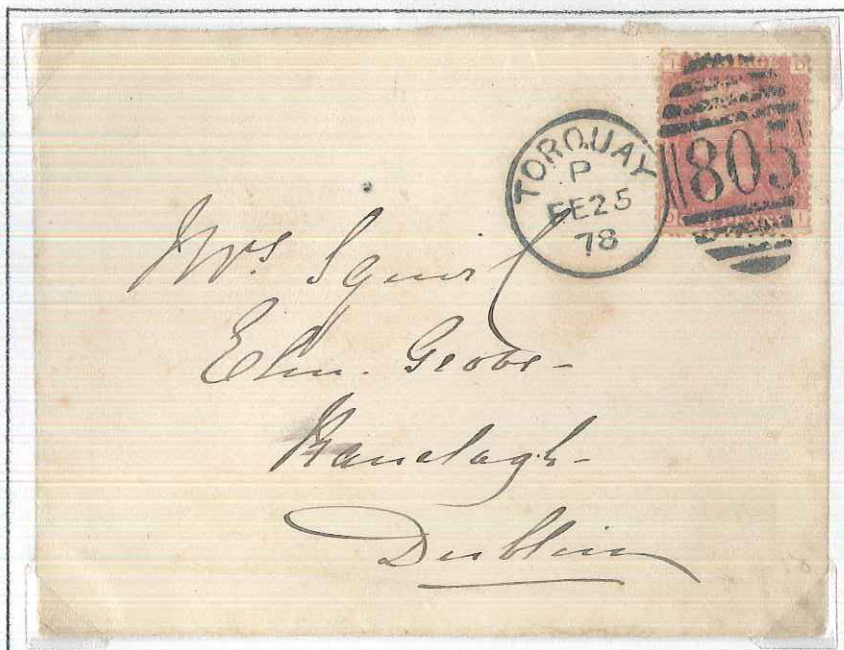 TORQUAY
P
FE25
78
805
Mrs Squirl
Elm. Grove-
Ranelagh-
Dublin